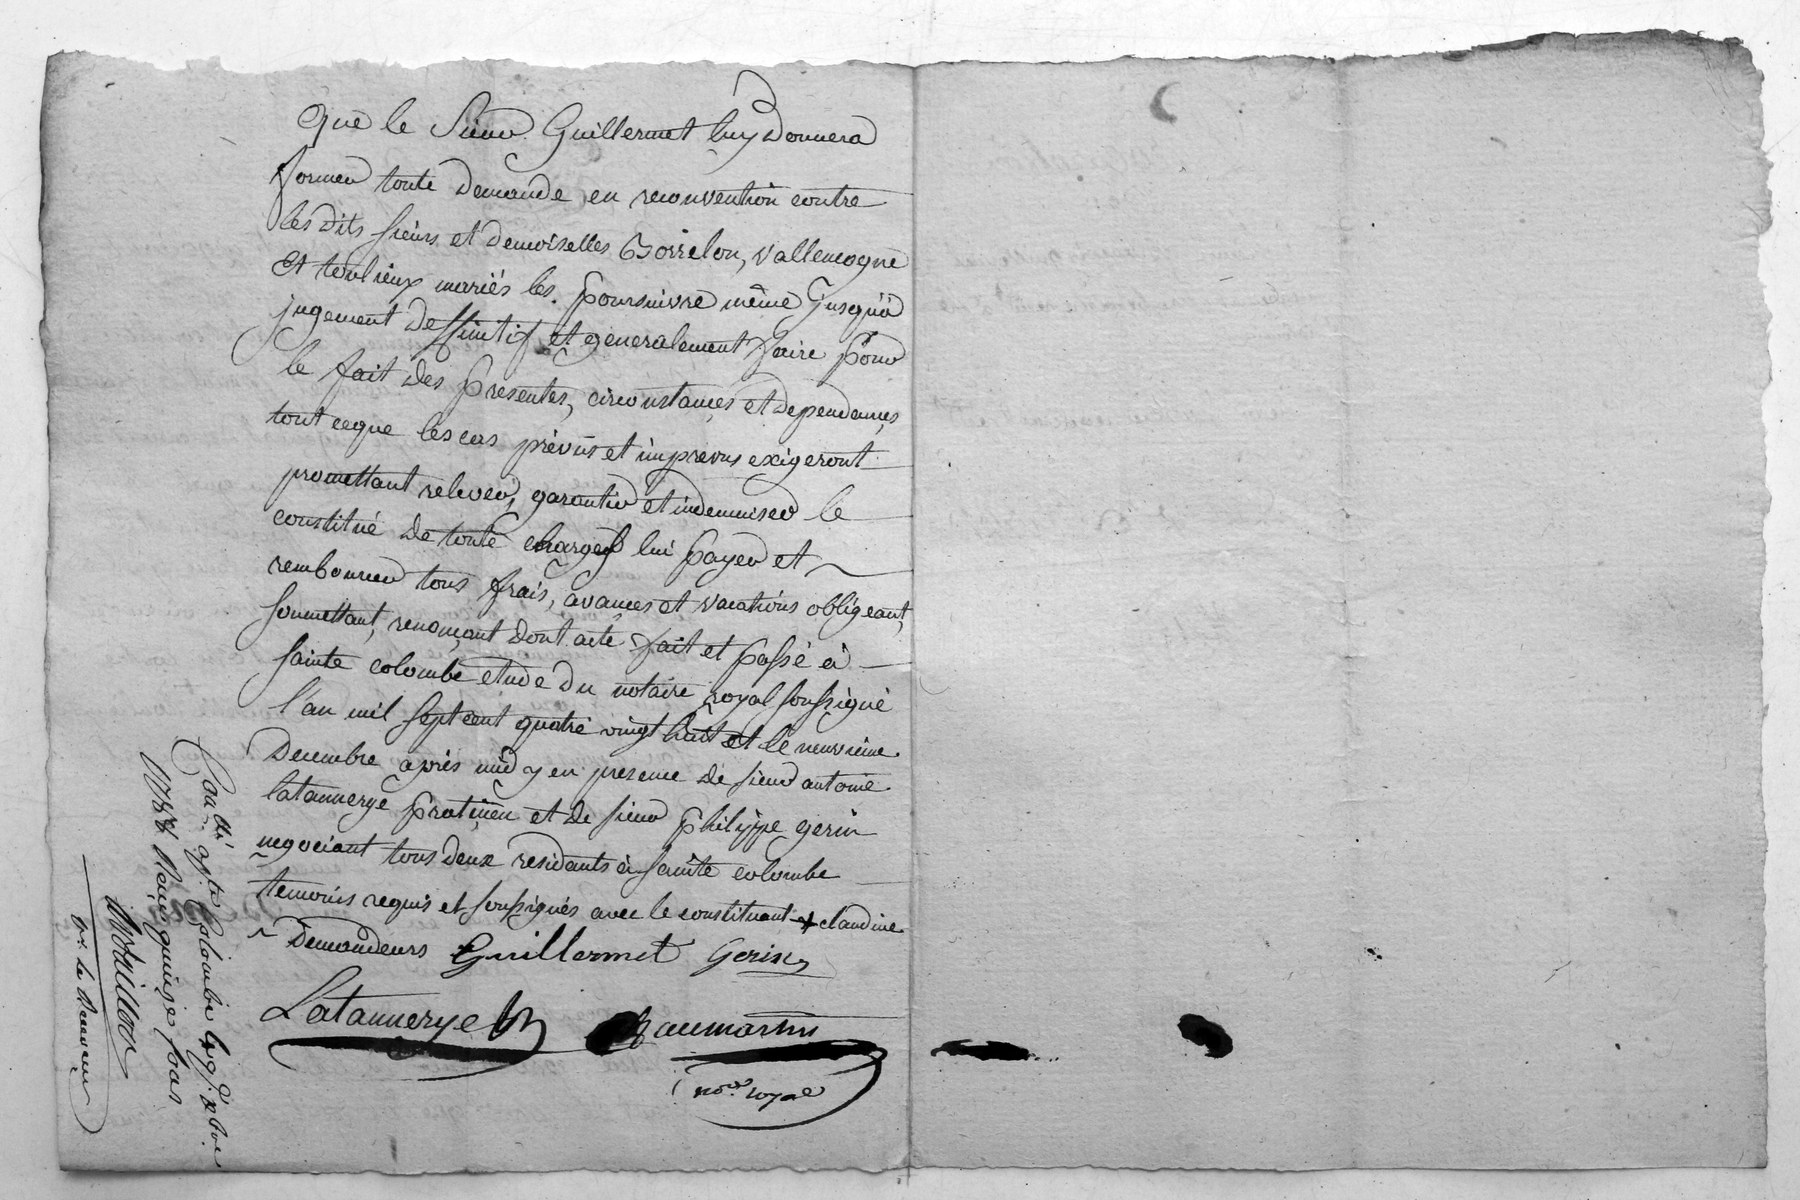 Que le Sieur Guillermet luy Donnera
former toute Demande en reconvention contre
les dits sieurs et demoiselles Borrelon, vallemogne
et toulieux mariés les poursuivre même Jusqu'à
jugement deffinitif et generalement faire pour
le fait des presentes, circonstances et dependances,
tout ceque les cas prévus et imprevus exigeront
promettant relever, garantir et indemniser le
constitué de toute charges lui payer et
rembourser tous frais, avances et vacations obligeant,
soumettant, renonçant dont acte fait et passé à
sainte colombe etude du notaire royal soussigné
l'an mil sept cent quatre vingt huit et le neuvieme
Decembre après midy en presence de sieur antoine
latannerye praticien et de sieur philippe gerin
negociant tous deux residants à sainte colombe
temoins requis et soussignés avec le constituant + claudine
Demandeurs Guillermet Gerin
Latannerye
not.re royal
Con.lé à S.te Colombe le 9. xbre
1788 Reçu quinze sous